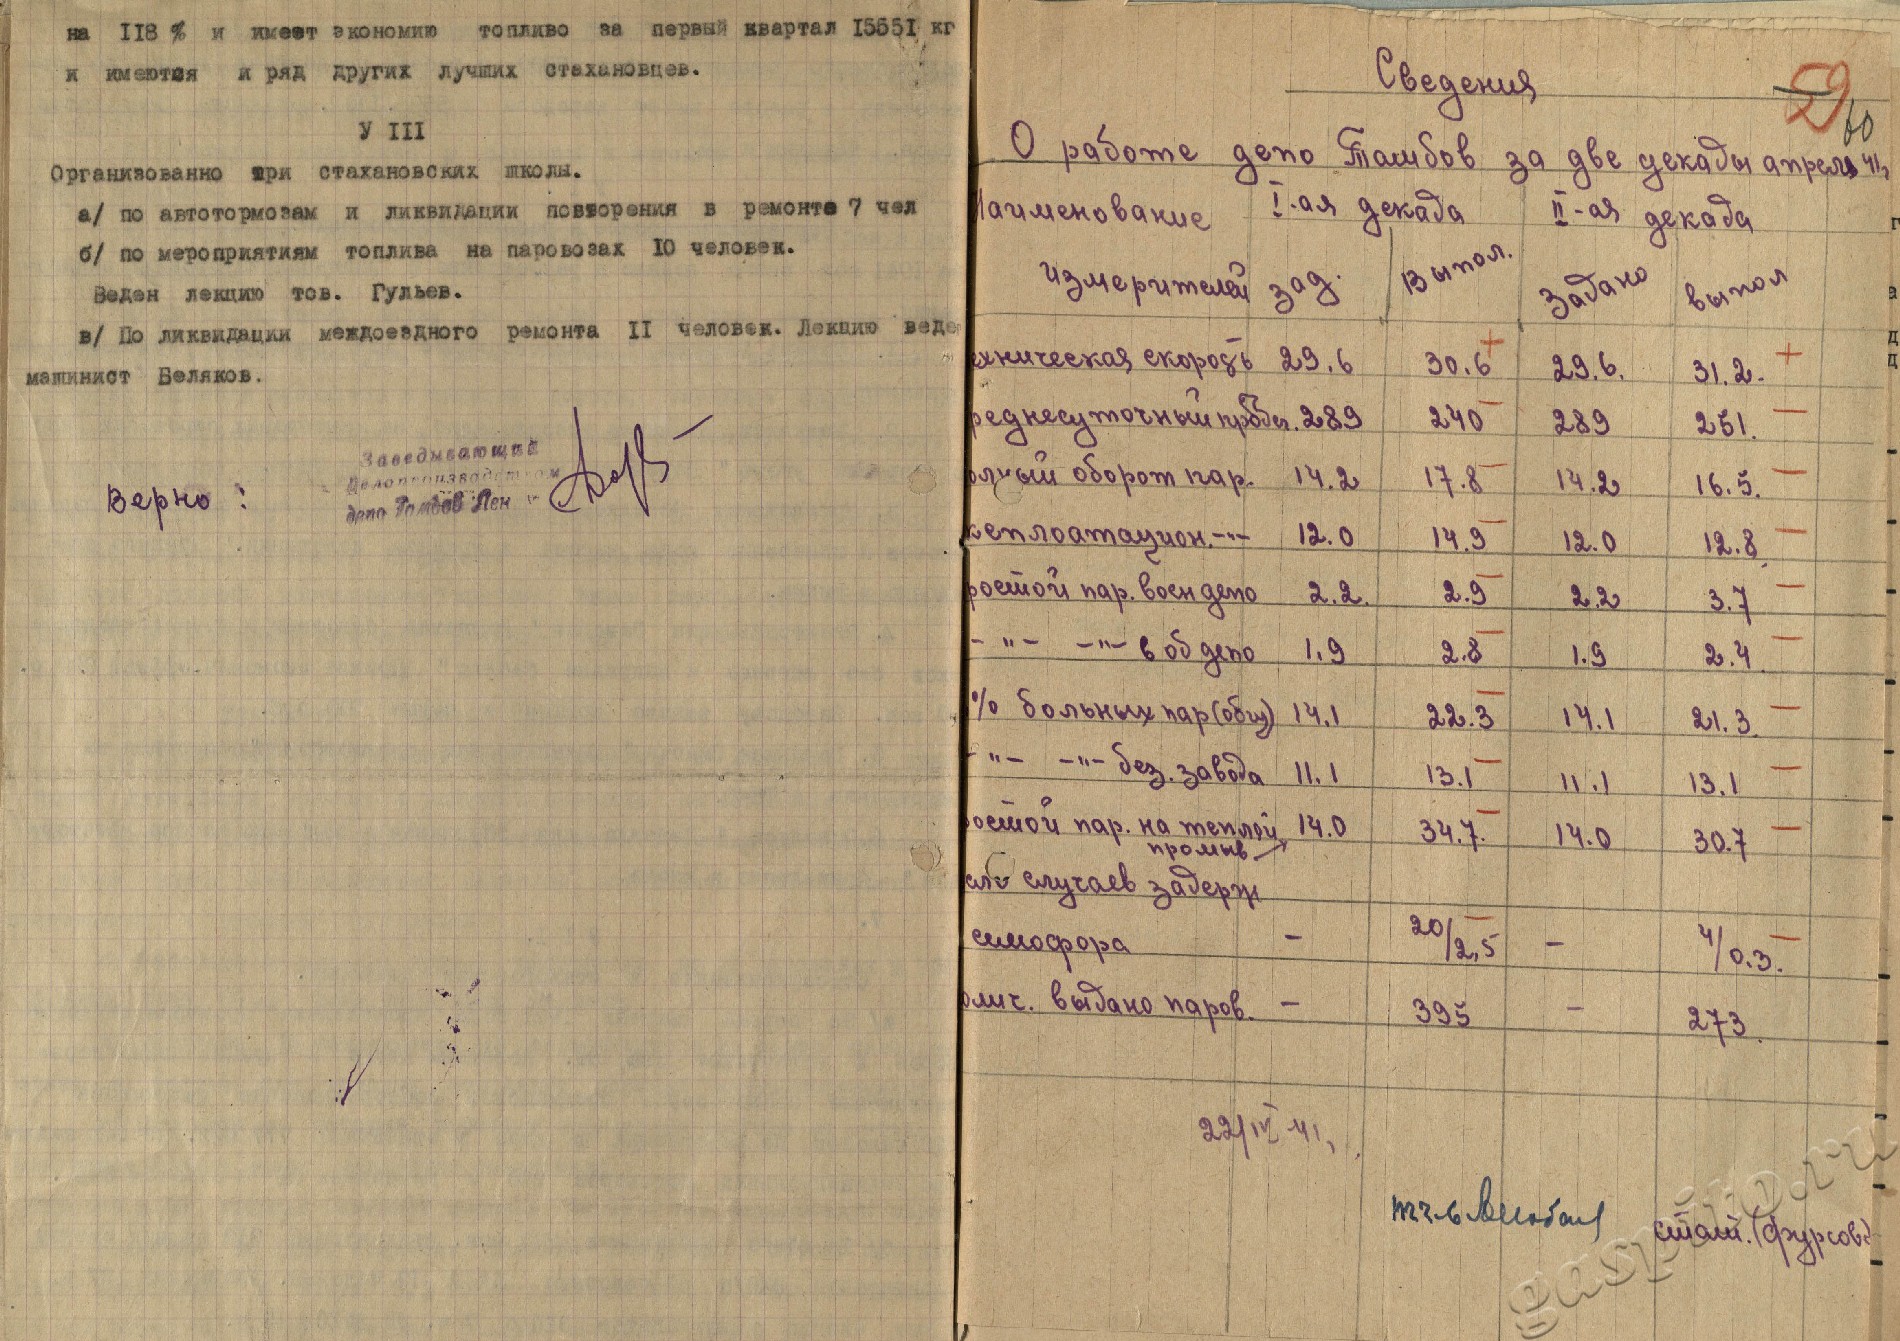 на II8 % и имеет экономию топливо за первый квартал I5651 кг
и имеются и ряд других лучших стахановцев.
У III
Организованно при стахановских школы.
а/ по автотормозам и ликвидации повторения в ремонте 7 чел
б/ по мероприятиям топлива на паровозах I0 человек.
Веден лекцию тов. Гульев.
в/ По ликвидации междоездного ремонта II человек. Лекцию веде
машинист Беляков.
Заведывающий
Делопроизводством
депо Тамбов Лен
Верно:
59
60
Сведения
О работе депо Тамбов за две декады апреля 41,
Наименование I-ая декада II-ая декада
измерителей зад. Выпол. Задано выпол
ехническая скорость 29.6 30.6 + 29.6. 31.2. +
реднесуточный пробег. 289 240 – 289 251. –
олный оборот пар. 14.2 17.8 – 14.2 16.5. –
ксплоатацион. –"– 12.0 14.9 – 12.0 12.8 –
ростой пар. в осн депо 2.2. 2.9 – 2.2 3.7 –
– "– –"– в об депо 1.9 2.8 – 1.9 2.4 –
% больных пар (общ) 14.1 22.3 – 14.1 21.3 –
– "– –"– без. завода 11.1 13.1 – 11.1 13.1 –
ростой пар. на теплой 14.0 34.7. – 14.0 30.7 –
промыв
случаев задерж
семофора – 20/2,5 – – 4/0.3. –
олич. выдано паров. – 395 – 273
22/IV 41,
тч-6
стат. (Фурсов
gaspito.ru